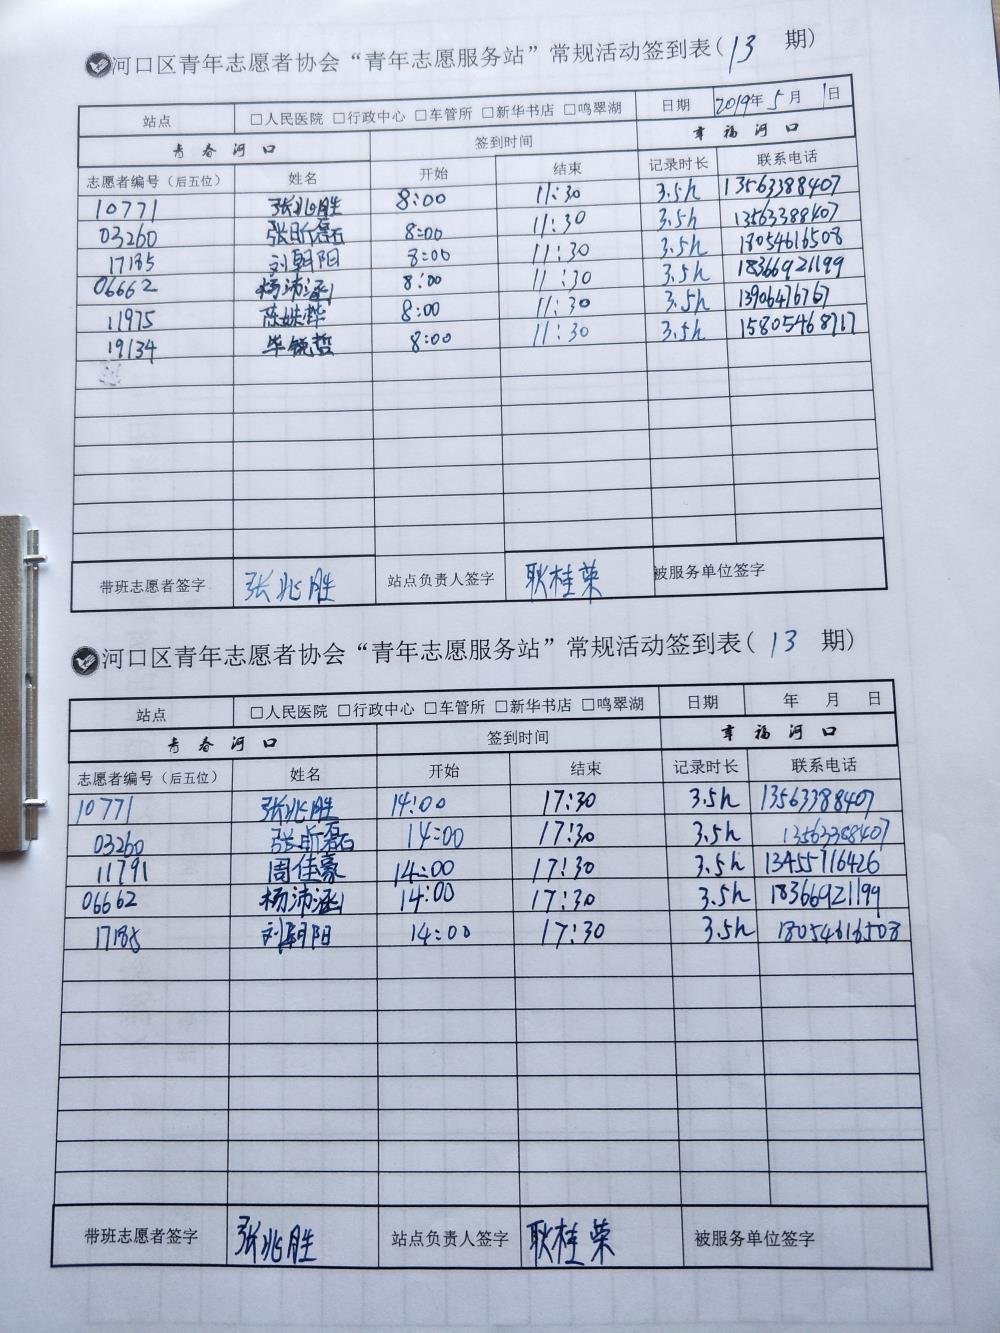 河口区青年志愿者协会“青年志愿服务站”常规活动签到表（13 期）
站点 □人民医院 □行政中心 □车管所 □新华书店 □鸣翠湖 日期 2019年 5月 1日
青春河口 签到时间 幸福河口
志愿者编号（后五位） 姓名 开始 结束 记录时长 联系电话
10771 张兆胜 8:00 11:30 3.5h 13563388407
03260 张昕磊 8:00 11:30 3.5h 13563388407
17185 刘朝阳 8:00 11:30 3.5h 18054616508
06662 杨沛涵 8:00 11:30 3.5h 18366921199
11975 陈姝烨 8:00 11:30 3.5h 13906476767
19134 毕锐哲 8:00 11:30 3.5h 15805468717
带班志愿者签字 张兆胜 站点负责人签字 耿桂荣 被服务单位签字
河口区青年志愿者协会“青年志愿服务站”常规活动签到表（13 期）
站点 □人民医院 □行政中心 □车管所 □新华书店 □鸣翠湖 日期 年 月 日
青春河口 签到时间 幸福河口
志愿者编号（后五位） 姓名 开始 结束 记录时长 联系电话
10771 张兆胜 14:00 17:30 3.5h 13563388407
03260 张昕磊 14:00 17:30 3.5h 13563388407
11791 周佳豪 14:00 17:30 3.5h 13455716426
06662 杨沛涵 14:00 17:30 3.5h 18366921199
17185 刘朝阳 14:00 17:30 3.5h 18054616508
带班志愿者签字 张兆胜 站点负责人签字 耿桂荣 被服务单位签字